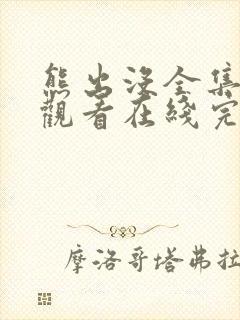 熊出没全集
觀看在綫完
摩洛哥塔弗拉